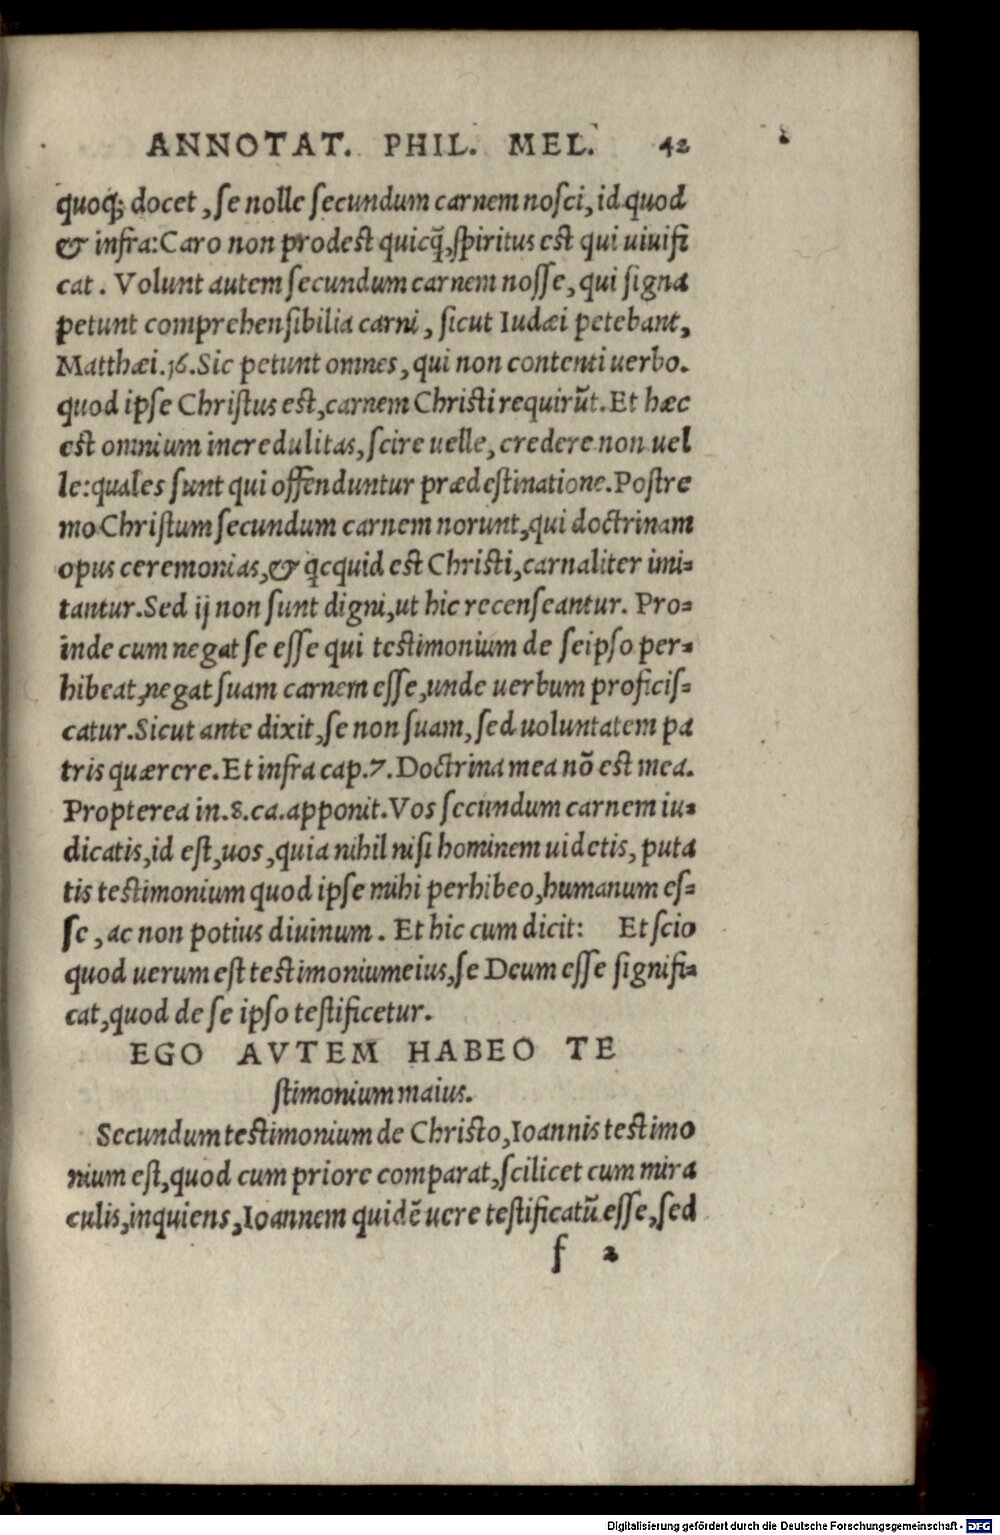 ANNOTAT. PHIL. MEL. 42
quoq; docet, se nolle secundum carnem nosci, id quod
& infra: Caro non prodest quicq̃, spiritus est qui uiuifi
cat. Volunt autem secundum carnem nosse, qui signa
petunt comprehensibilia carni, sicut Iudæi petebant,
Matthæi. 16. Sic petunt omnes, qui non contenti uerbo.
quod ipse Christus est, carnem Christi requirũt. Et hæc
est omnium incredulitas, scire uelle, credere non uel
le: quales sunt qui offenduntur prædestinatione. Postre
mo Christum secundum carnem norunt, qui doctrinam
opus ceremonias, & qcquid est Christi, carnaliter imi-
tantur. Sed ij non sunt digni, ut hic recenseantur. Pro-
inde cum negat se esse qui testimonium de seipso per-
hibeat, negat suam carnem esse, unde uerbum proficis-
catur. Sicut ante dixit, se non suam, sed uoluntatem pa
tris quærere. Et infra cap. 7. Doctrina mea nõ est mea.
Propterea in. 8. ca. apponit. Vos secundum carnem iu-
dicatis, id est, uos, quia nihil nisi hominem uidetis, puta
tis testimonium quod ipse mihi perhibeo, humanum es-
se, ac non potius diuinum. Et hic cum dicit: Et scio
quod uerum est testimonium eius, se Deum esse signifi-
cat, quod de se ipso testificetur.
EGO AVTEM HABEO TE
stimonium maius.
Secundum testimonium de Christo, Ioannis testimo
nium est, quod cum priore comparat, scilicet cum mira
culis, inquiens, Ioannem quidẽ uere testificatũ esse, sed
f 2
Digitalisierung gefördert durch die Deutsche Forschungsgemeinschaft - DFG